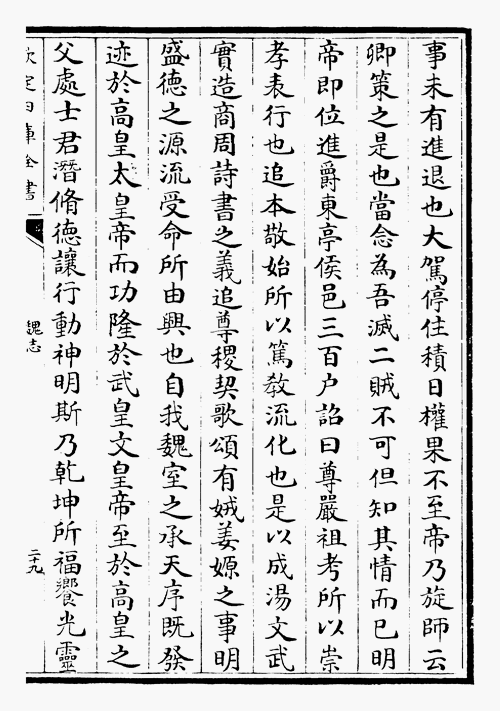 事未有進退也大駕停住積日權果不至帝乃旋師云
卿策之是也當念為吾滅二賊不可但知其情而已明
帝即位進爵東亭侯邑三百户詔曰尊嚴祖考所以崇
孝表行也追本敬始所以篤敎流化也是以成湯文武
實造商周詩書之義追尊稷契歌頌有娀姜嫄之事明
盛德之源流受命所由興也自我魏室之承天序既發
迹於高皇太皇帝而功隆於武皇文皇帝至於高皇之
父處士君潛脩德讓行動神明斯乃乾坤所福饗光靈
欽定四庫全書
魏志
二十九